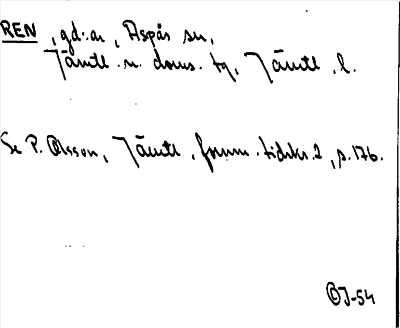 REN, gd:ar, Aspås sn,
Jämtl. n. doms. tg, Jämtl. l.
Se P. Olsson, Jämtl. fornm. tidskr. 2, s. 176.
ÖJ-54